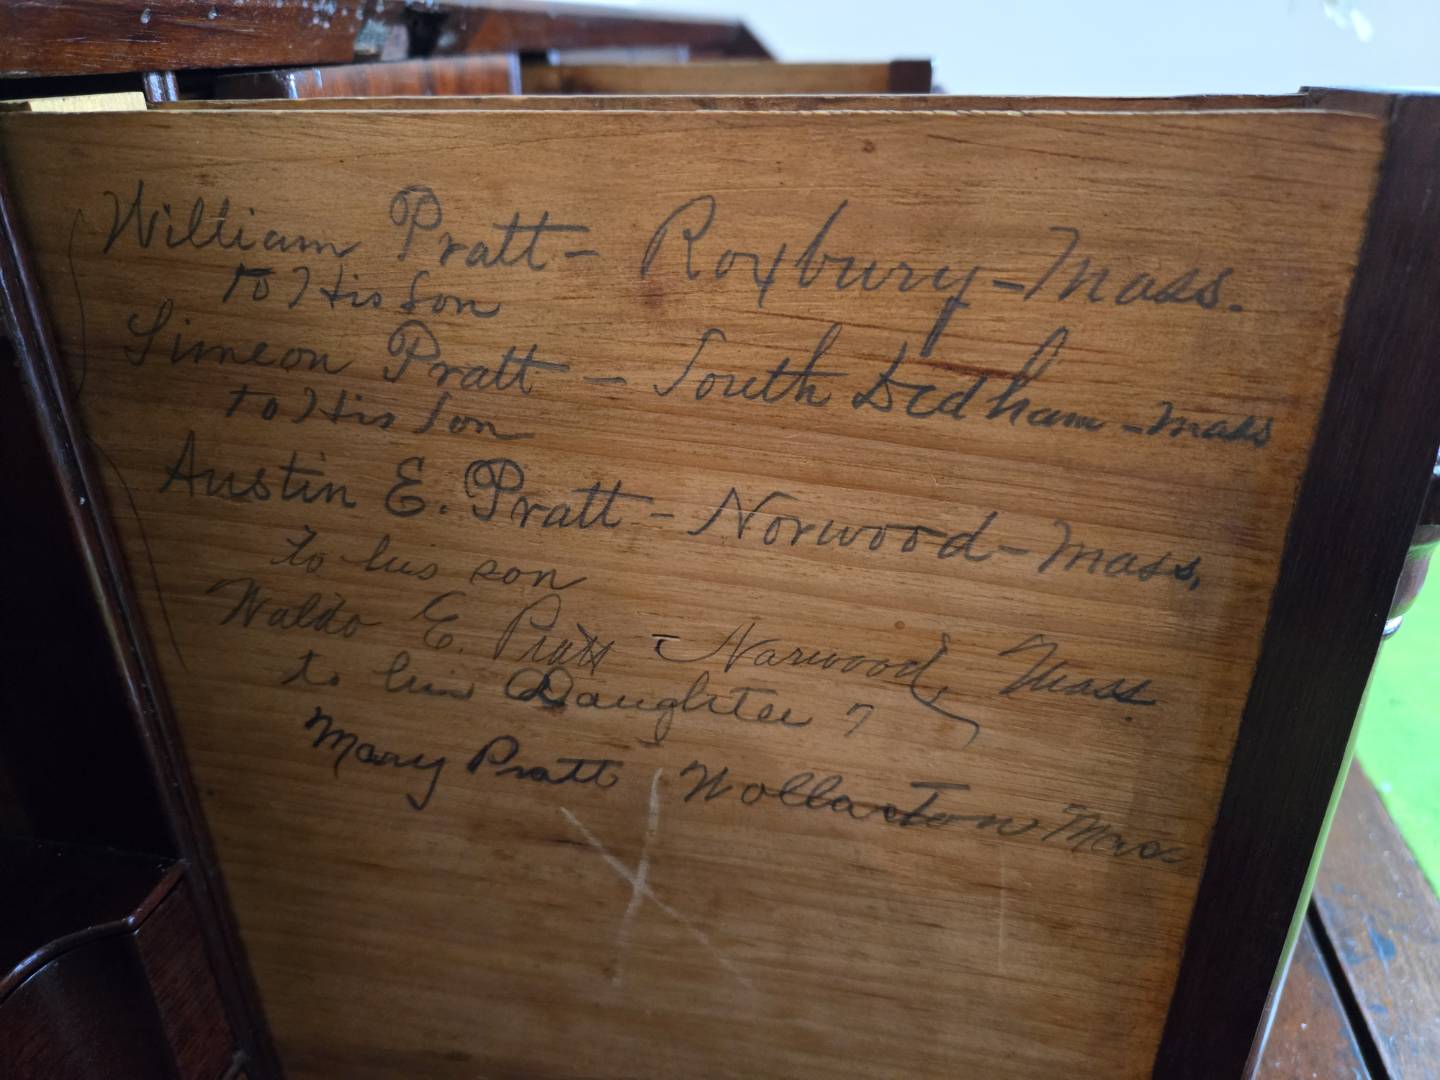 William Pratt - Roxbury - Mass.
to His Son
Simeon Pratt - South Dedham - Mass
to His Son
Austin E. Pratt - Norwood - Mass,
to his son
Waldo E. Pratt - Norwood, Mass.
to his Daughter
Mary Pratt Wollaston Mass